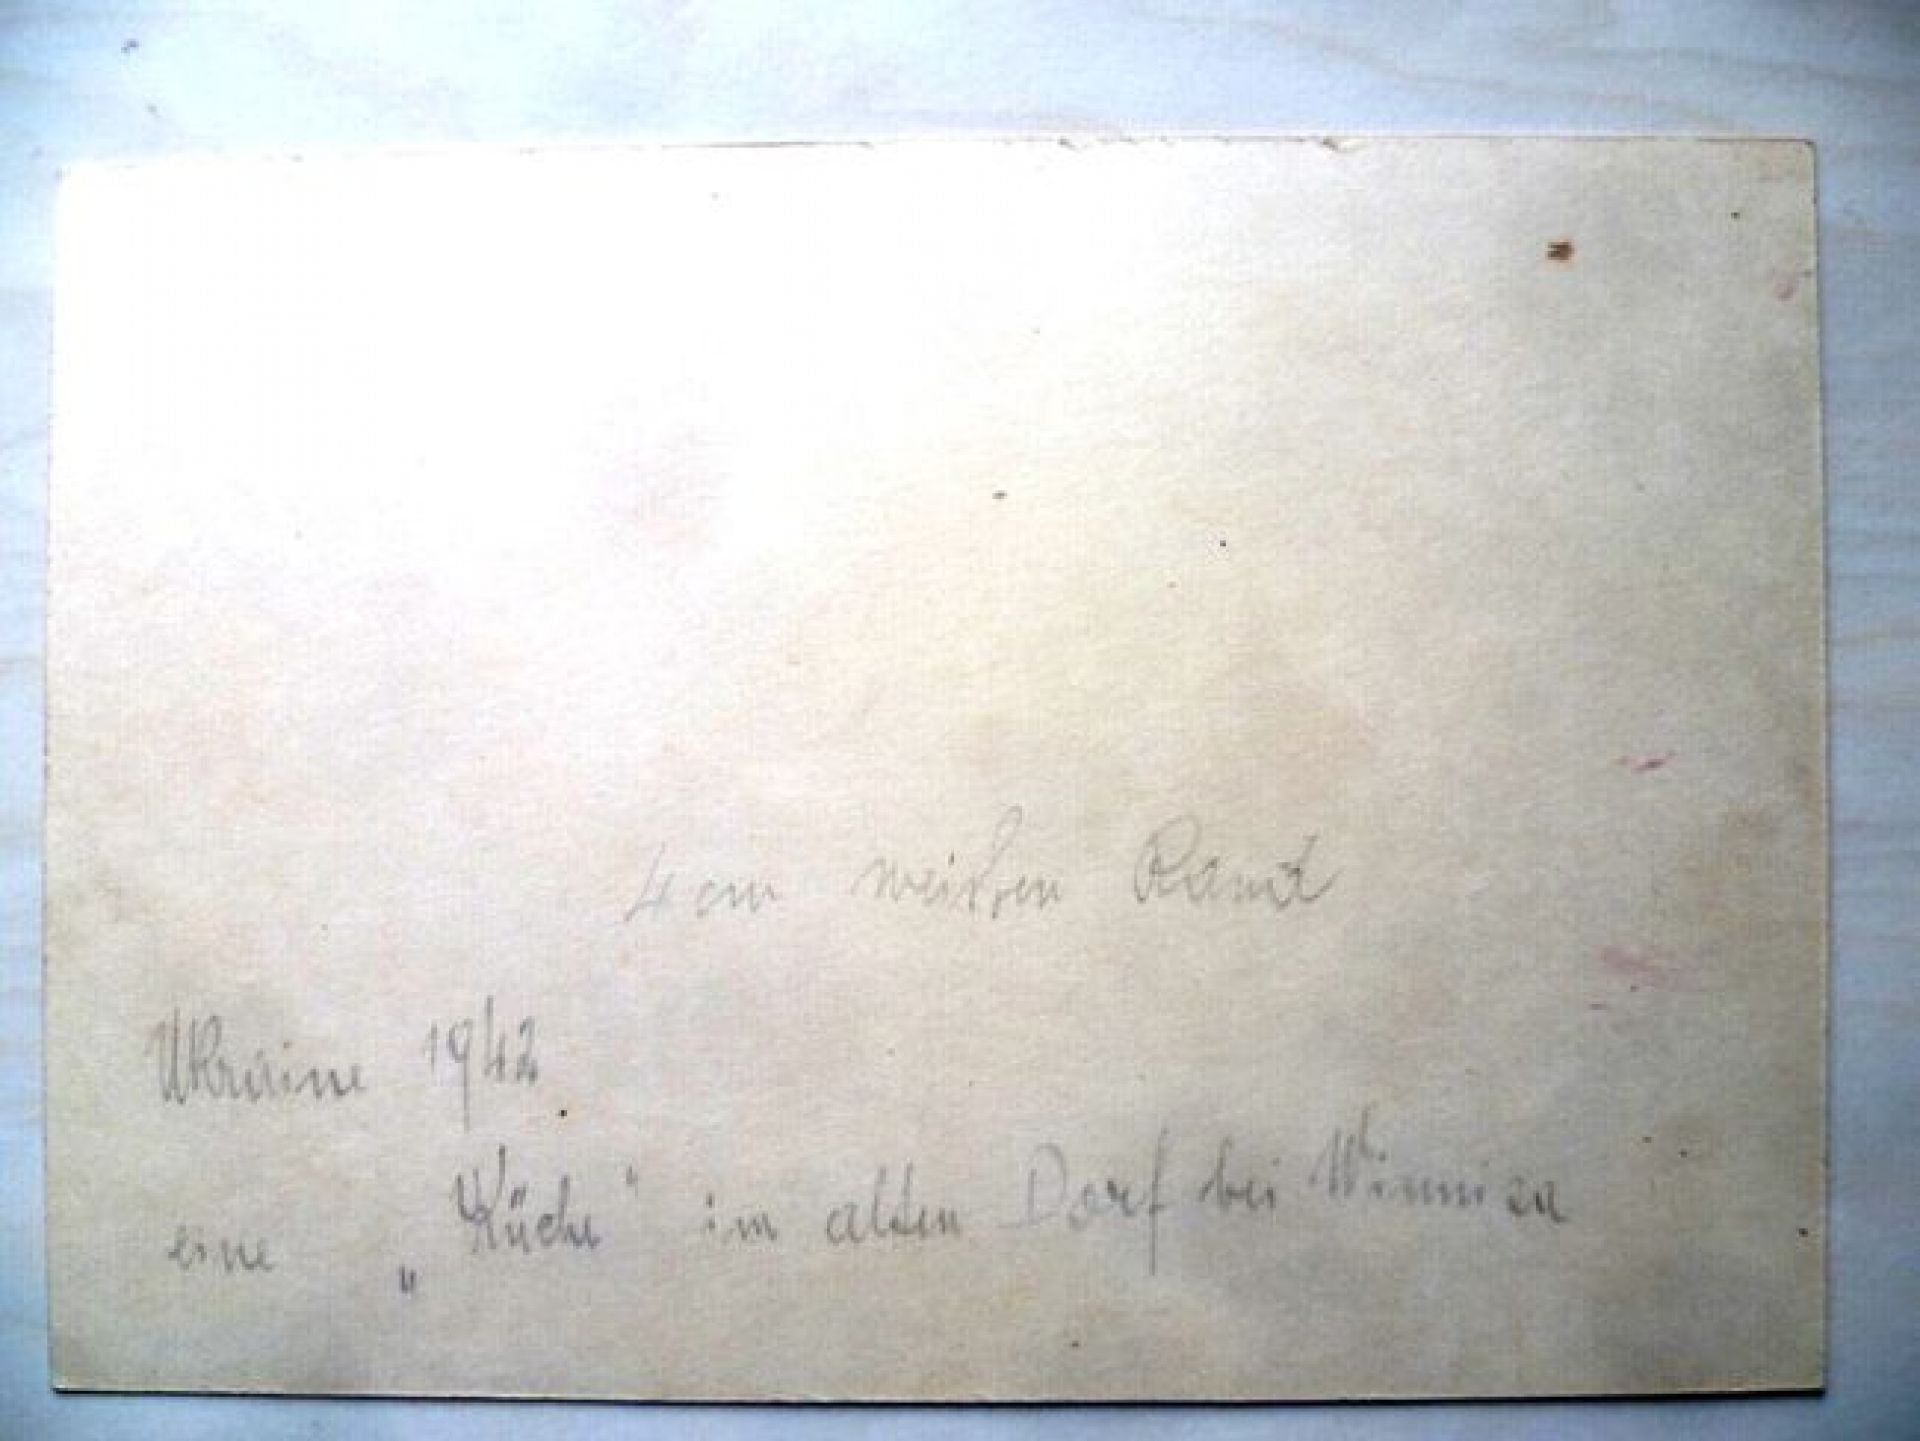 4 cm weißen Rand
Ukraine 1942
eine „Küche" im alten Dorf bei Winniza